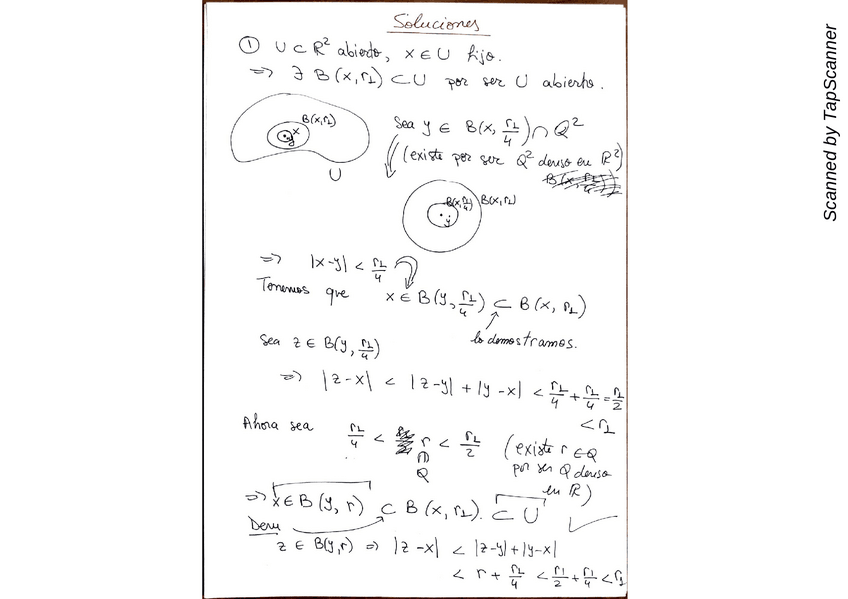 Soluciones
① U ⊂ R² abierto, x ∈ U fijo.
⇒ ∃ B(x, r₁) ⊂ U por ser U abierto.
B(x, r₁)
x
y
U
Sea y ∈ B(x, r₁/4) ∩ Q²
(existe por ser Q² denso en R²)
B(x, r₁/4) B(x, r₁)
y
⇒ |x-y| < r₁/4
Tenemos que x ∈ B(y, r₁/4) ⊂ B(x, r₁)
lo demostramos.
Sea z ∈ B(y, r₁/4)
⇒ |z-x| < |z-y| + |y-x| < r₁/4 + r₁/4 = r₁/2
< r₁
Ahora sea r₁/4 < r < r₁/2 (existe r ∈ Q
∩
Q
por ser Q denso
en R)
⇒ x ∈ B(y, r) ⊂ B(x, r₁). ⊂ U
Dem
z ∈ B(y, r) ⇒ |z-x| < |z-y| + |y-x|
< r + r₁/4 < r₁/2 + r₁/4 < r₁
Scanned by TapScanner